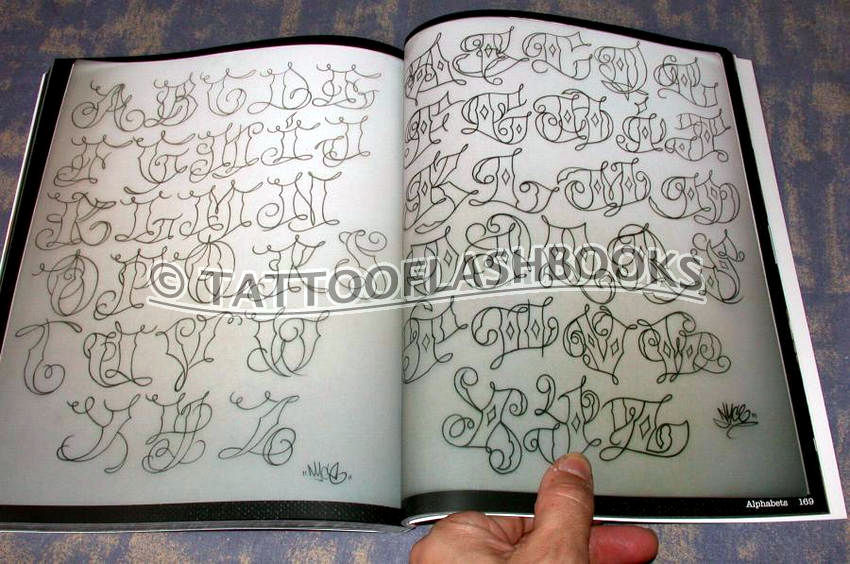 A B C D E
F G H I J
K L M N
O P Q R S
T U V W
X Y Z
"NYCE"
A B C D E
F G H I J
K L M N
O P Q R S
T U V W
X Y Z
NYCE
© TATTOOFLASHBOOKS
Alphabets 169